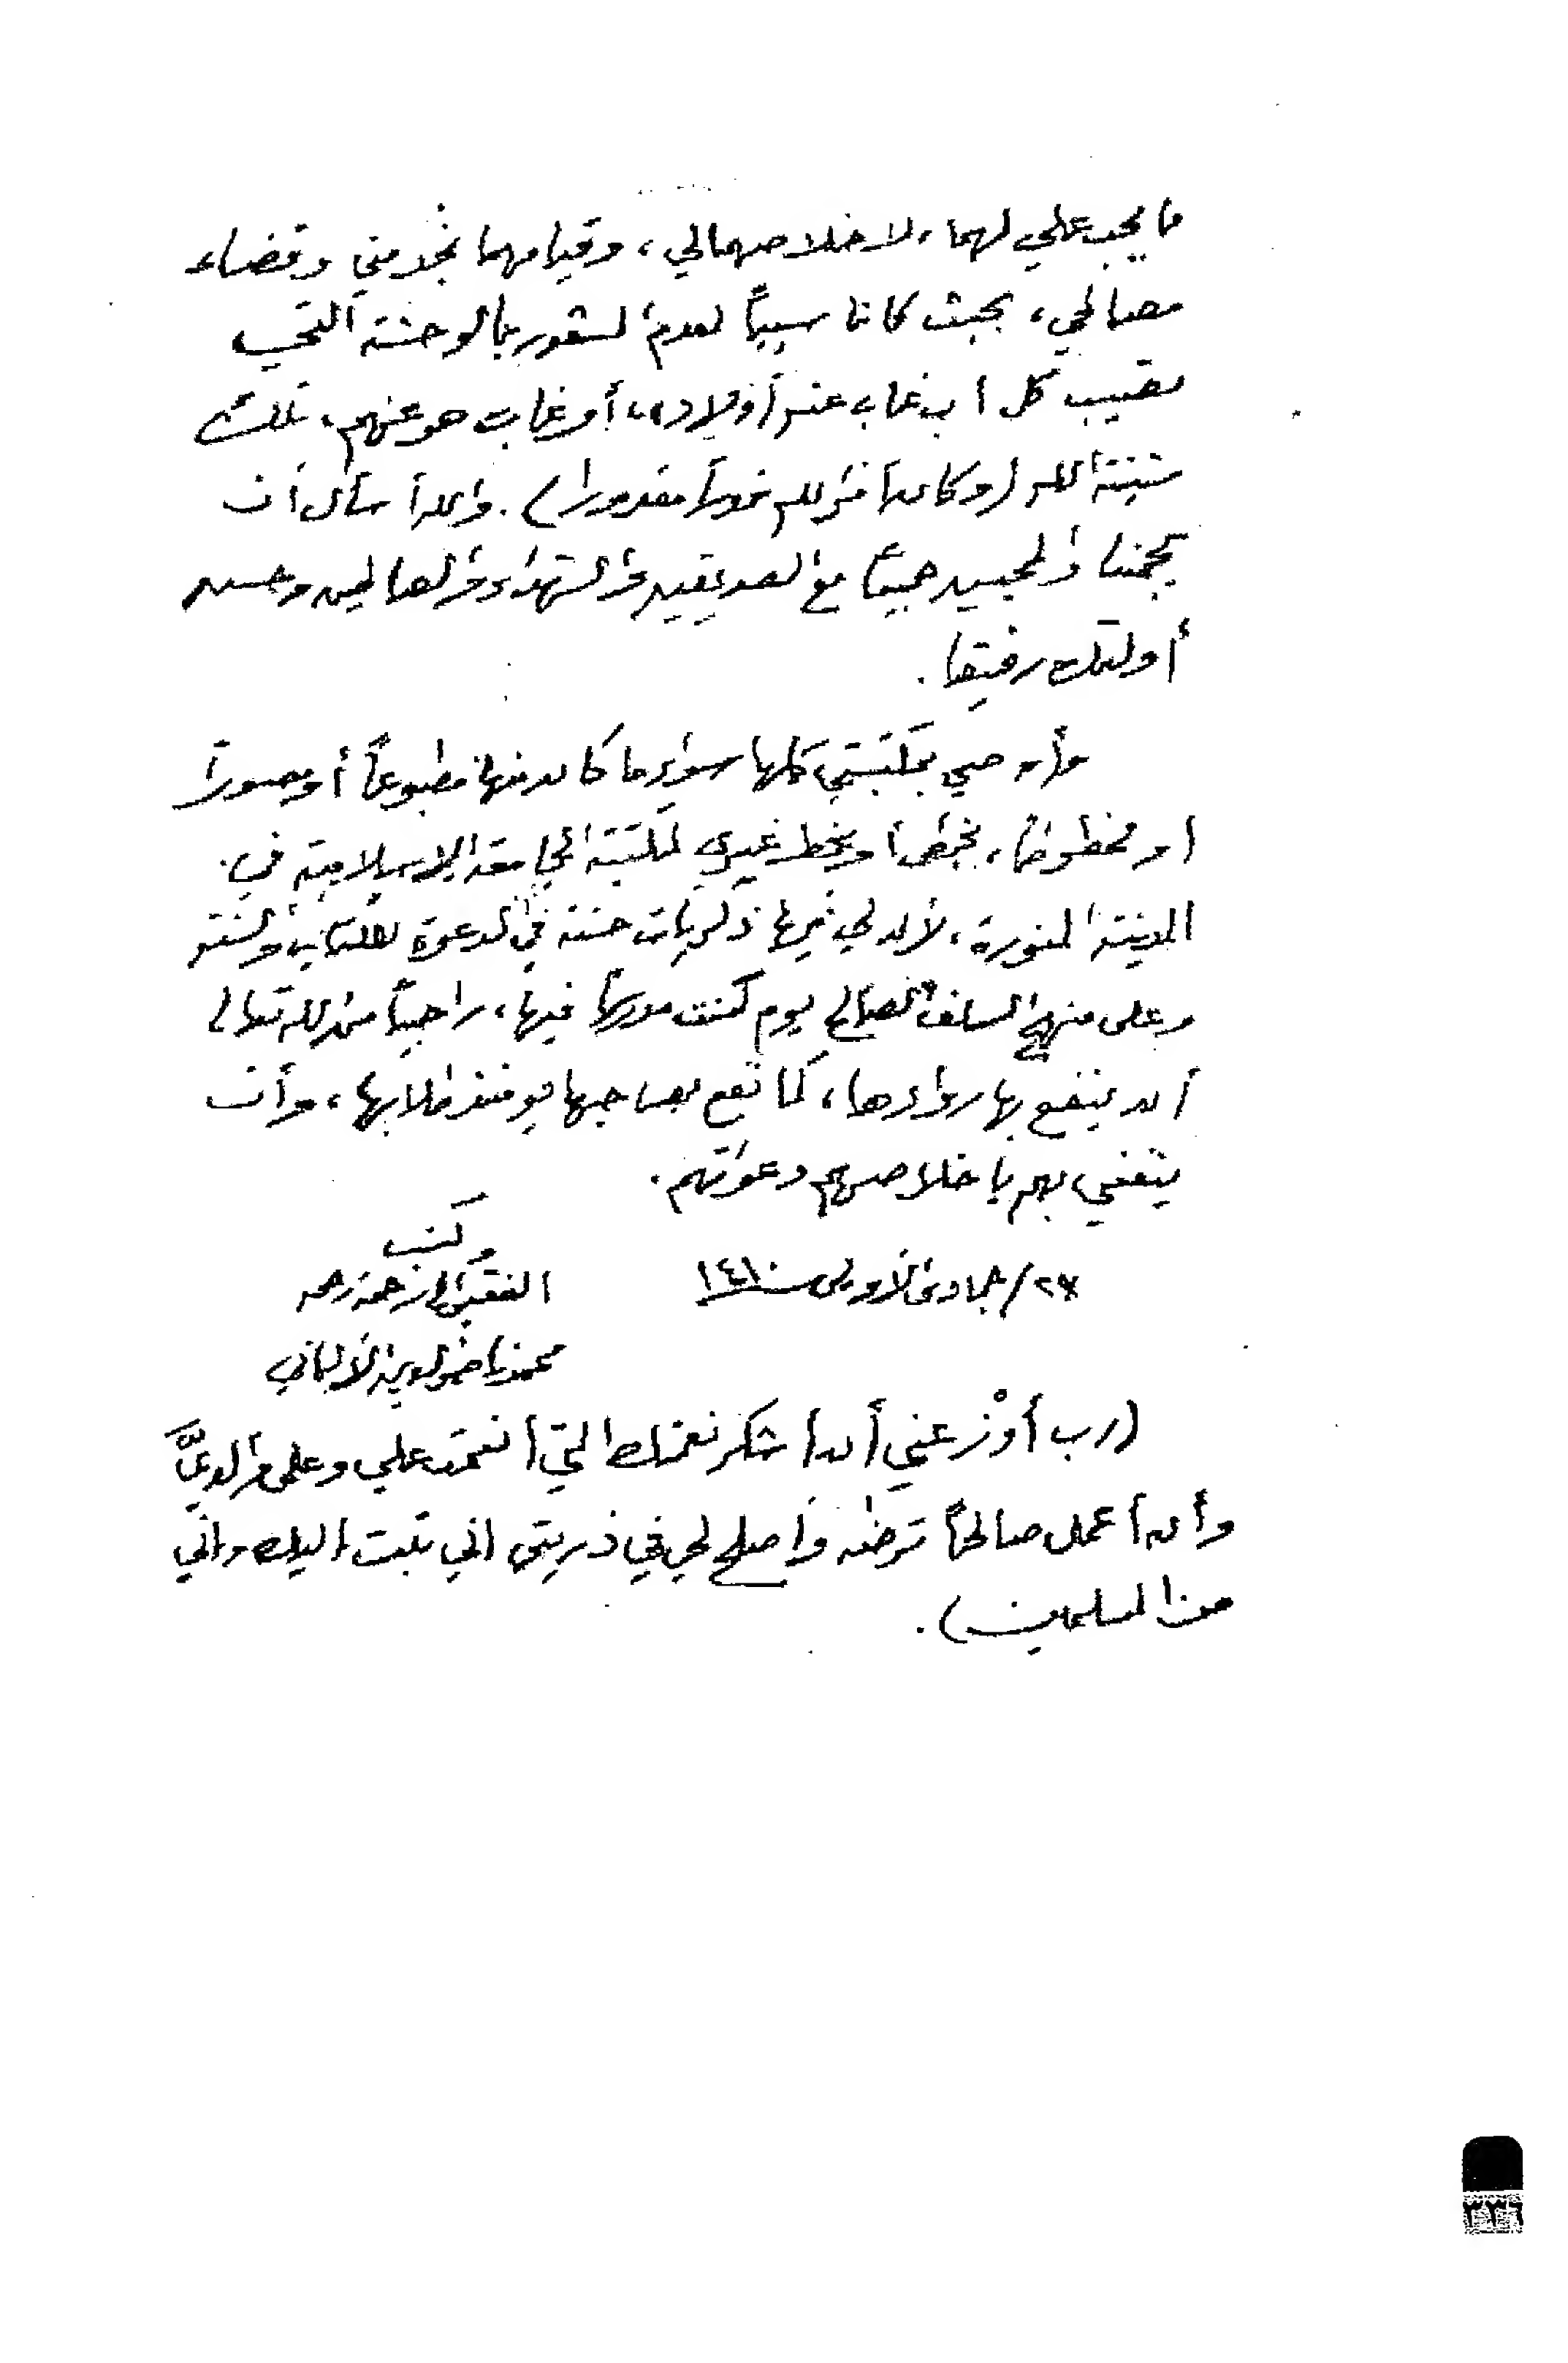 ما يجب علي لهما، لاخلاصهما لي، وقيامهما بخدمتي وقضاء
مصالحي، بحيث كانا سبباً لعدم الشعور بالوحشة التي
تصيب كل أب غاب عنه أولاده، أو غاب هو عنهم، تلك
سنة الله (وكان أمر الله قدراً مقدورا). والله أسأل أن
يجمعنا والمحبين جميعاً مع الصديقين والشهداء والصالحين وحسن
أولئك رفيقا.
وأوصي بمكتبتي كلها سواء ما كان منها مطبوعاً أو مصوراً
أو مخطوطاً، بخطي أو بخط غيري لمكتبة الجامعة الاسلامية في
المدينة المنورة، لأن لي فيها ذكريات حسنة في الدعوة للكتاب والسنة
وعلى منهج السلف الصالح يوم كنت مدرساً فيها، راجياً من الله تعالى
أن ينفع بها روادها، كما نفع بصاحبها يومئذ طلابها، وأن
ينفعني بهم باخلاصهم ودعواتهم.
وكتب
٢٧/جمادى الأولى سنة ١٤١٠ الفقير إلى رحمة ربه
محمد ناصر الدين الألباني
(رب أوْزعني أن أشكر نعمتك التي أنعمت علي وعلى والديَّ
وأن أعمل صالحاً ترضاه وأصلح لي في ذريتي اني تبت اليك واني
من المسلمين).
٣٣٦